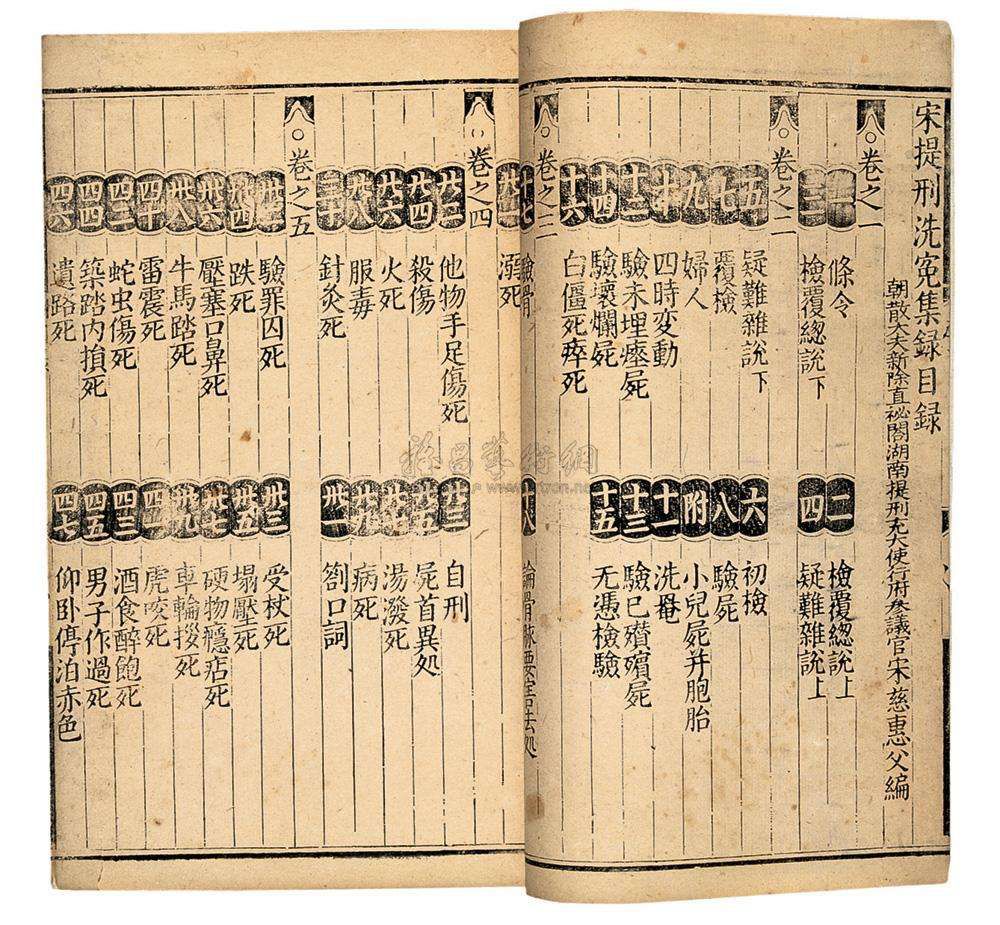 宋提刑洗冤集録目録
朝散大夫新除直祕閣湖南提刑充大使行府參議官宋慈惠父編
卷之一
一 條令 二 檢覆總說上
三 檢覆總說下 四 疑難雜說上
卷之二
五 疑難雜說下 六 初檢
七 覆檢 八 驗屍
九 婦人 附 小兒屍并胞胎
十 四時変動 十一 洗罨
十二 驗未埋瘞屍 十三 驗已殯屍
十四 驗壞爛屍 十五 无憑檢驗
十六 白僵死瘁死
卷之三
十七 驗骨 十八 論骨脉要害去処
溺死
卷之四
廿二 他物手足傷死 廿三 自刑
廿四 殺傷 廿五 屍首異処
廿六 火死 廿七 湯潑死
廿八 服毒 廿九 病死
三十 針灸死 卅一 劄口詞
卷之五
卅二 驗罪囚死 卅三 受杖死
卅四 跌死 卅五 塌壓死
卅六 壓塞口鼻死 卅七 硬物癮痁死
卅八 牛馬踏死 卅九 車輪拶死
四十 雷震死 四一 虎咬死
四二 蛇虫傷死 四三 酒食醉飽死
四四 築踏内損死 四五 男子作過死
四六 遺路死 四七 仰卧停泊赤色